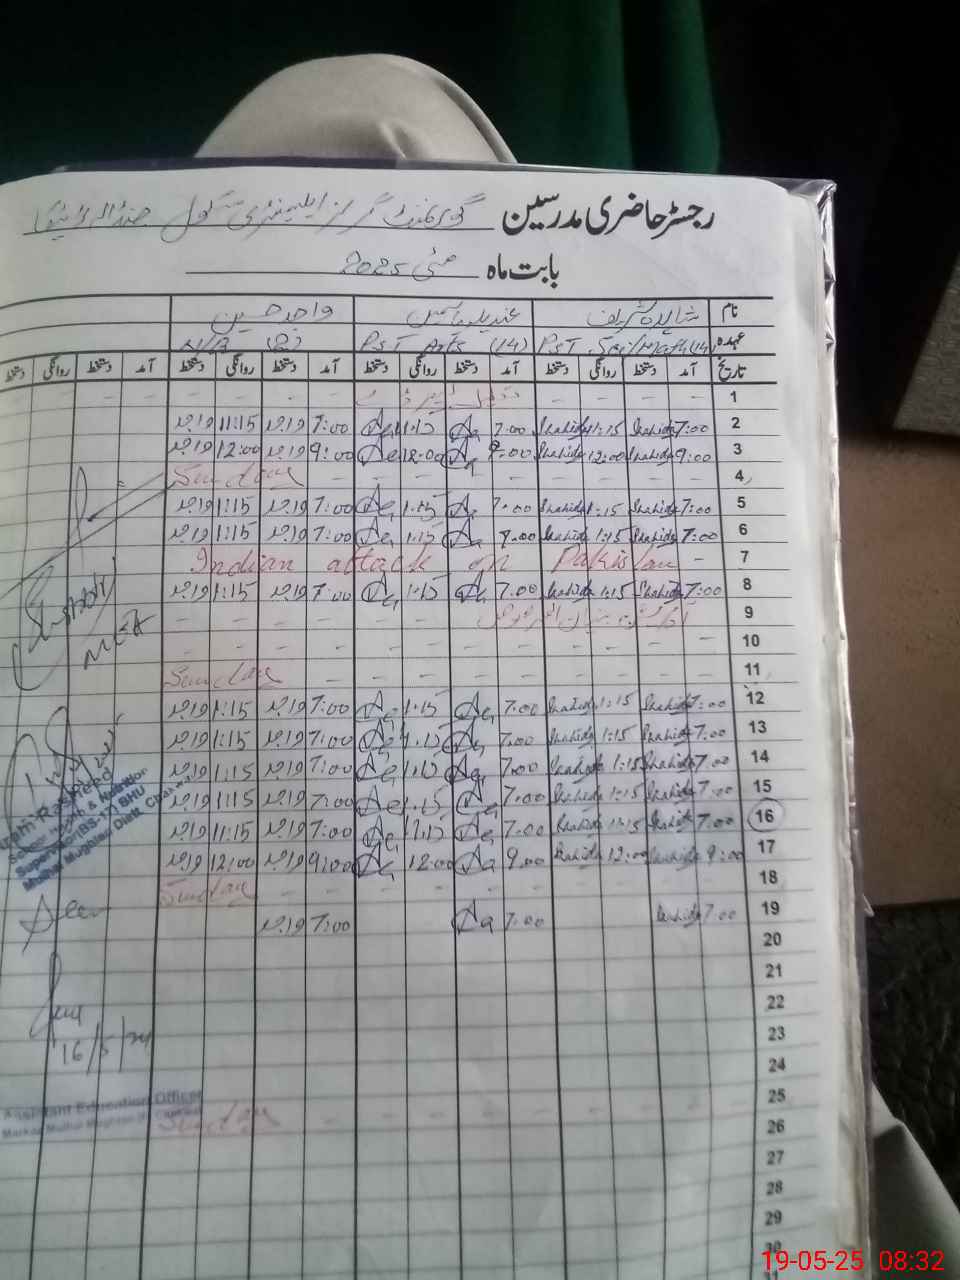 رجسٹر حاضری مدرسین گورنمنٹ گرلز ایلیمنٹری سکول
بابت ماہ مئی 2025
نام شاہدہ شریف عندلیب یاسمین واجد حسین
عہدہ PST Sci/Math (14) PST Arts (14) N/B
تاریخ آمد دستخط روانگی دستخط آمد دستخط روانگی دستخط آمد دستخط روانگی دستخط آمد دستخط روانگی دستخط
1
2 7:00 Shahida 11:15 Shahida 7:00 11:15 7:00 واجد 11:15 واجد
3 9:00 Shahida 12:00 Shahida 9:00 12:00 9:00 واجد 12:00 واجد
4 Sunday
5 7:00 Shahida 1:15 Shahida 7:00 1:15 7:00 واجد 1:15 واجد
6 7:00 Shahida 1:15 Shahida 7:00 1:15 7:00 واجد 1:15 واجد
7 Indian attack on Pakistan
8 7:00 Shahida 1:15 Shahida 7:00 1:15 7:00 واجد 1:15 واجد
9
10
11 Sunday
12 7:00 Shahida 1:15 Shahida 7:00 1:15 7:00 واجد 1:15 واجد
13 7:00 Shahida 1:15 Shahida 7:00 1:15 7:00 واجد 1:15 واجد
14 7:00 Shahida 1:15 Shahida 7:00 1:15 7:00 واجد 1:15 واجد
15 7:00 Shahida 1:15 Shahida 7:00 1:15 7:00 واجد 1:15 واجد
16 7:00 Shahida 11:15 Shahida 7:00 11:15 7:00 واجد 11:15 واجد
17 9:00 Shahida 12:00 Shahida 9:00 12:00 9:00 واجد 12:00 واجد
18 Sunday
19 7:00 Shahida 7:00 7:00 واجد
20
21
22
23
24
25 Sunday
26
27
28
29
30
MEA
Rasheed
School Health & Nutrition
Supervisor (BS-17) BHU
Mulhal Mughlan Distt. Chakwal
16/5/
Assistant Education Officer
Markaz Mulhal Mughlan
19-05-25 08:32